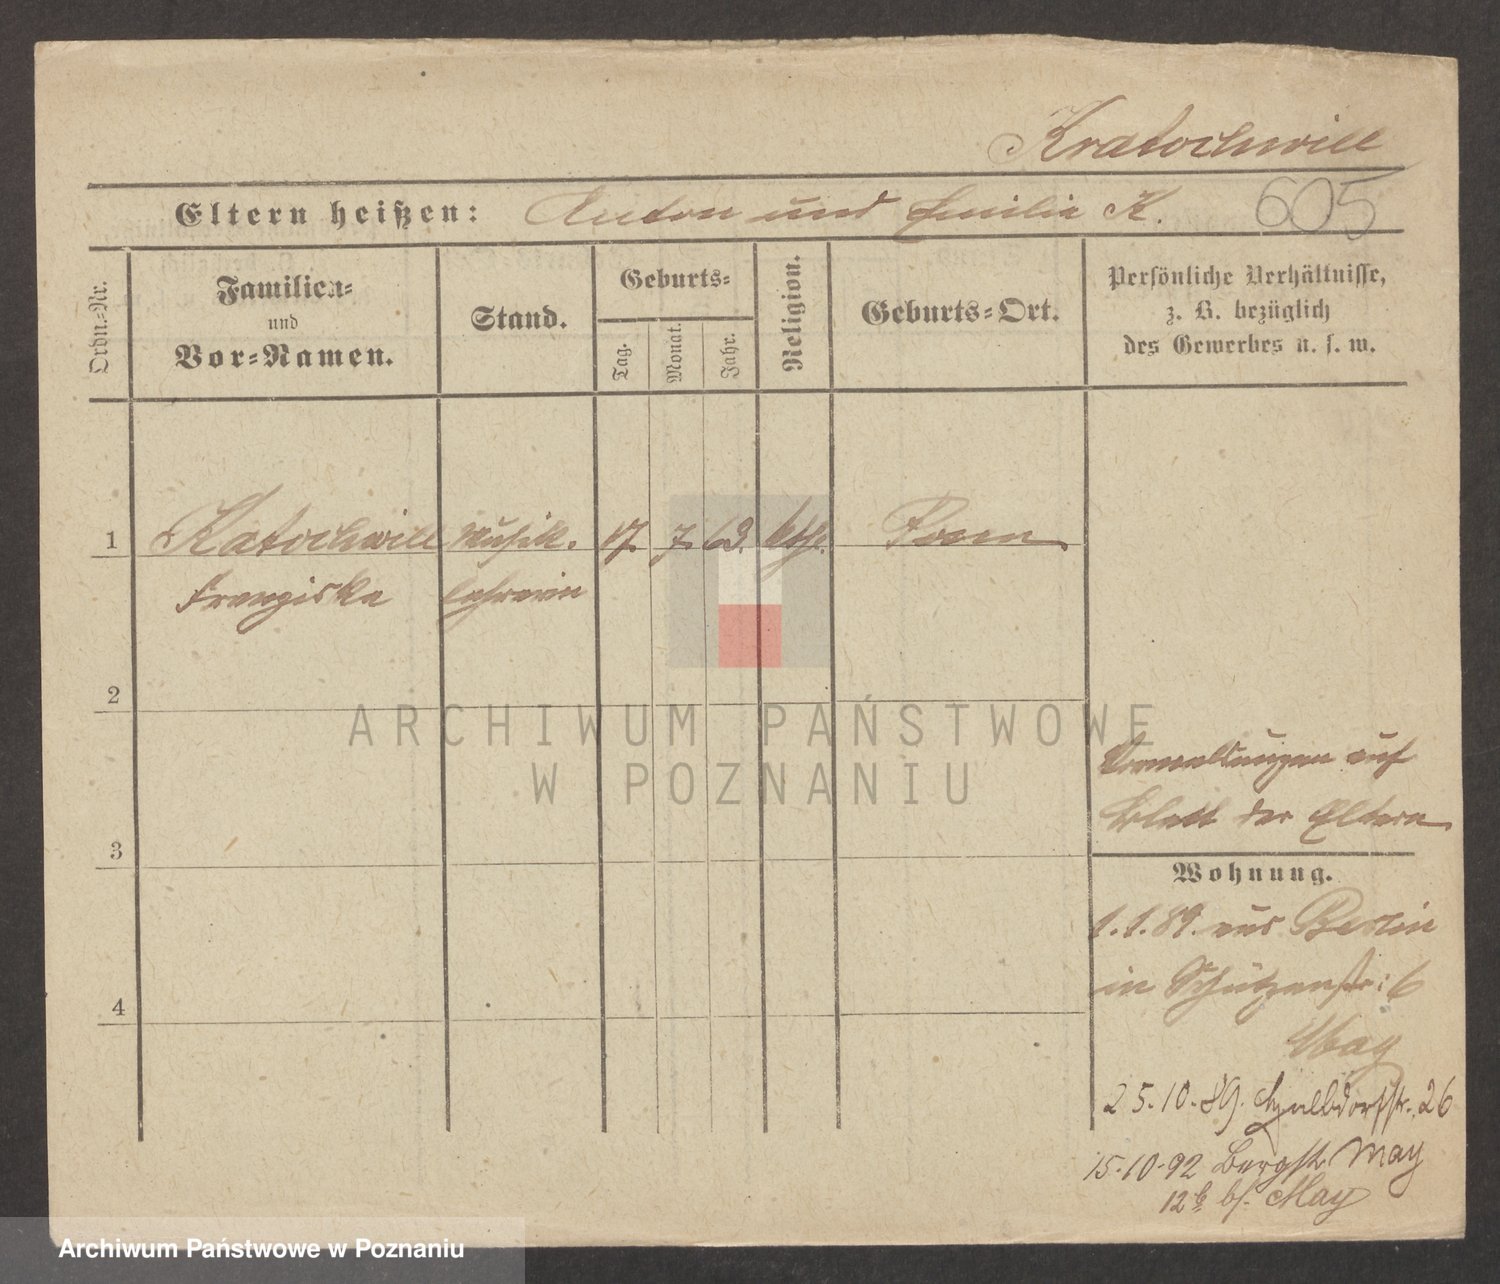 Kratochwill
Eltern heißen: Anton und Emilie K. 605
Ordn.-Nr.
Familien-
und
Vor-Namen.
Stand.
Geburts-
Tag.
Monat.
Jahr.
Religion.
Geburts-Ort.
Persönliche Verhältnisse,
z. B. bezüglich
des Gewerbes u. s. w.
1 Kratochwill Musik. 17. 7. 63. kth. Posen
Franziska lehrerin
2
3
4
ARCHIWUM PAŃSTWOWE
W POZNANIU
Vermeldungen auf
Blatt der Eltern
Wohnung.
1.1.89. aus Berlin
in Schützenstr: 6
May
25.10.89. Halbdorfstr. 26
15-10-92 Bergstr May
12b b/. May
Archiwum Państwowe w Poznaniu